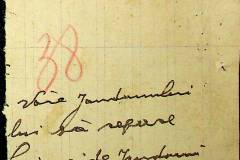 38
voie Jandarmului
lui să repare
de Jandarmi